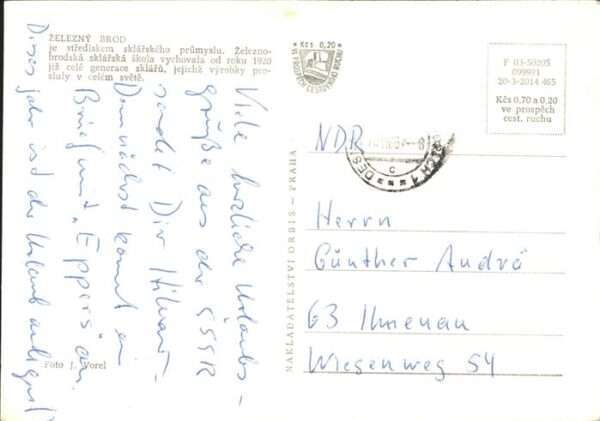 ŽELEZNÝ BROD
je střediskem sklářského průmyslu. Železno-
brodská sklářská škola vychovala od roku 1920
již celé generace sklářů, jejichž výrobky pro-
sluly v celém světě.
Viele herzliche Urlaubs-
grüße aus der ČSSR
sendet Dir
Demnächst kommt ein
Brief mit "Eppers" an.
Dieses Jahr ist der Urlaub
Foto J. Vorel
NAKLADATELSTVÍ ORBIS – PRAHA
Kčs 0,20
VE PROSPĚCH CESTOVNÍHO RUCHU
F 03-50205
099991
20-3-2014 465
Kčs 0,70 a 0,20
ve prospěch
cest. ruchu
NDR
Herrn
Günther André
63 Ilmenau
Wiesenweg 54